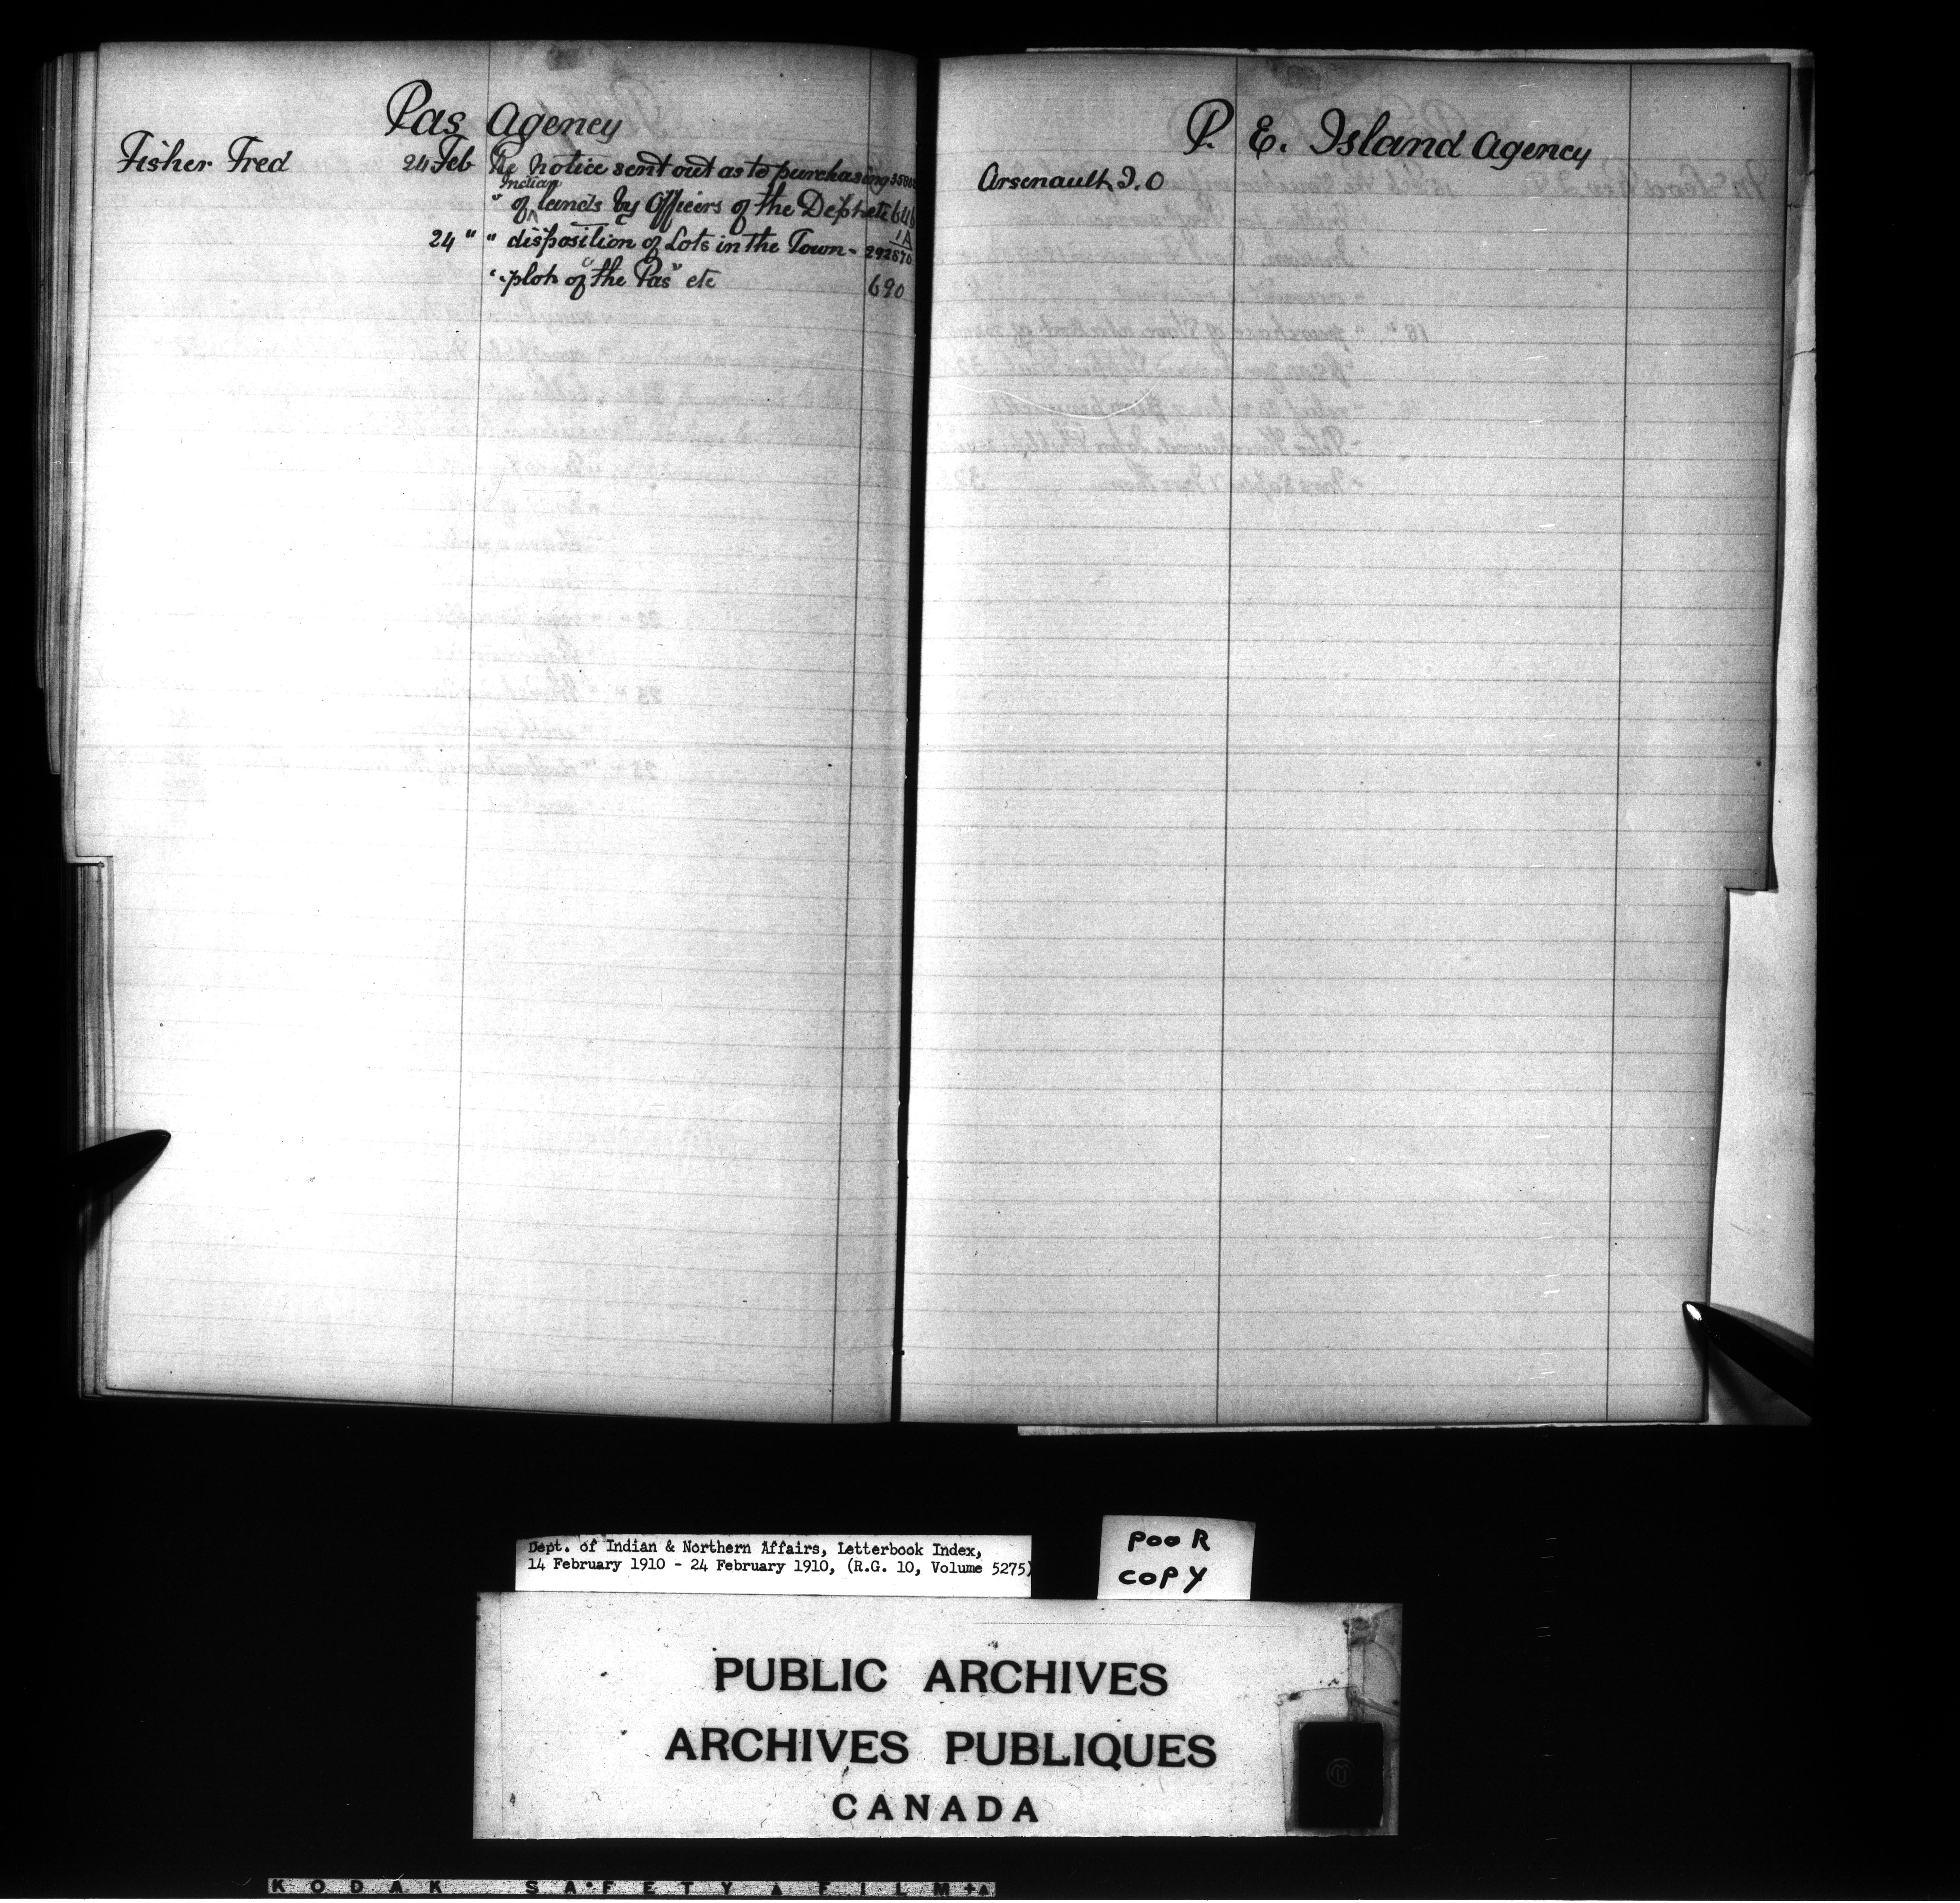 Pas Agency
Fisher Fred 24 Feb Re notice sent out as to purchasing
Indian
" of lands by Officers of the Dept etc 646
1A
24 " " disposition of Lots in the Town - 292576
" plot of "the Pas" etc 690
P. E. Island Agency
Arsenault, J. O
Dept. of Indian & Northern Affairs, Letterbook Index,
14 February 1910 - 24 February 1910, (R.G. 10, Volume 5275)
POOR
COPY
PUBLIC ARCHIVES
ARCHIVES PUBLIQUES
CANADA
KODAK SAFETY FILM